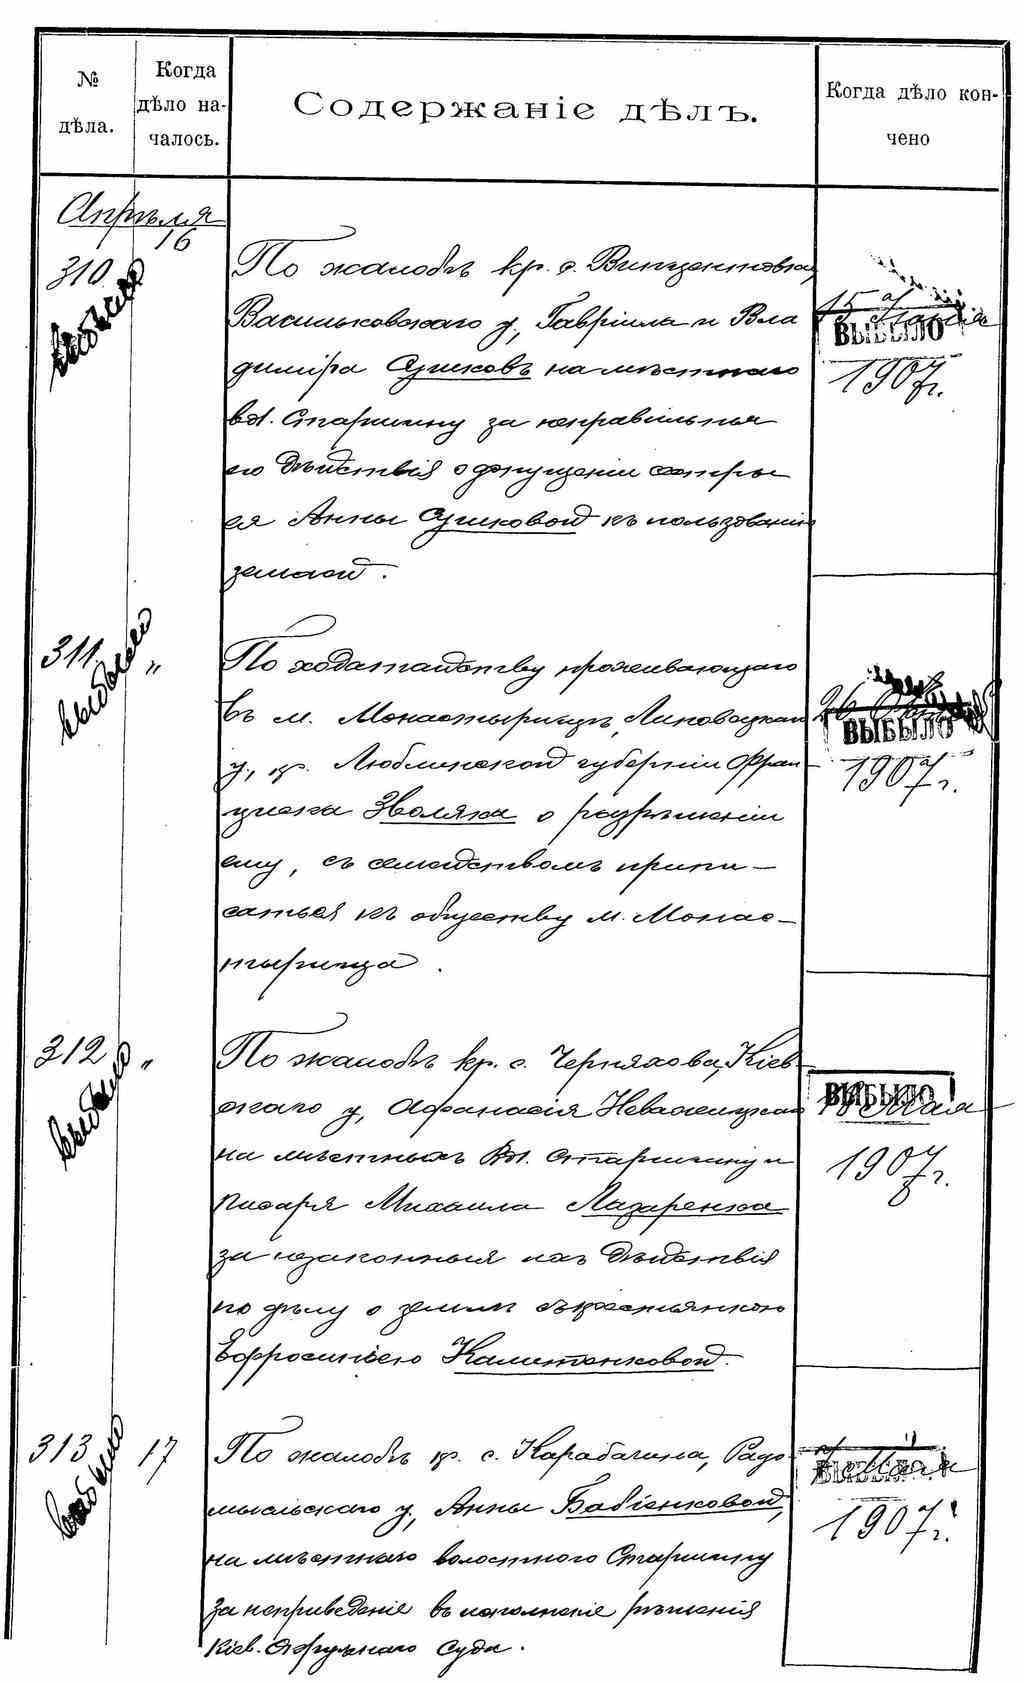 № дѣла.
Когда дѣло на-
чалось.
Содержаніе дѣлъ.
Когда дѣло кон-
чено
Апрѣля
16
310
выбыло
По жалобѣ кр. с. Винцентовки,
Васильковскаго у., Гавріила и Вла
диміра Сушковъ на мѣстнаго
вол. Старшину за неправильныя
его дѣйствія о допущеніи сестры
ея Анны Сушковой къ пользованію
землей.
15
ВЫБЫЛО
1907 г.
311.
выбыло
"
По ходатайству проживающаго
въ м. Монастырищѣ, Липовецкаго
у., кр. Люблинской губерніи Фран-
циска Зволяка о разрѣшеніи
ему, съ семействомъ припи-
саться къ обществу м. Монас-
тырища.
26
ВЫБЫЛО
1907 г.
312
выбыло
"
По жалобѣ кр. с. Черняхова, Кіев-
скаго у., Афанасія
на мѣстныхъ Вол. Старшину и
писаря Михаила Лазаренка
за незаконныя ихъ дѣйствія
по дѣлу о землѣ съ крестьянкою
Ефросиніею Калитенковой.
ВЫБЫЛО
18 Мая
1907 г.
313
выбыло
17
По жалобѣ кр. с. Карабачина, Радо-
мысльскаго у., Анны Бабіенковой,
на мѣстнаго волостного Старшину
за неприведеніе въ исполненіе рѣшенія
Кіев. Окружнаго Суда.
ВЫБЫЛО
1907 г.